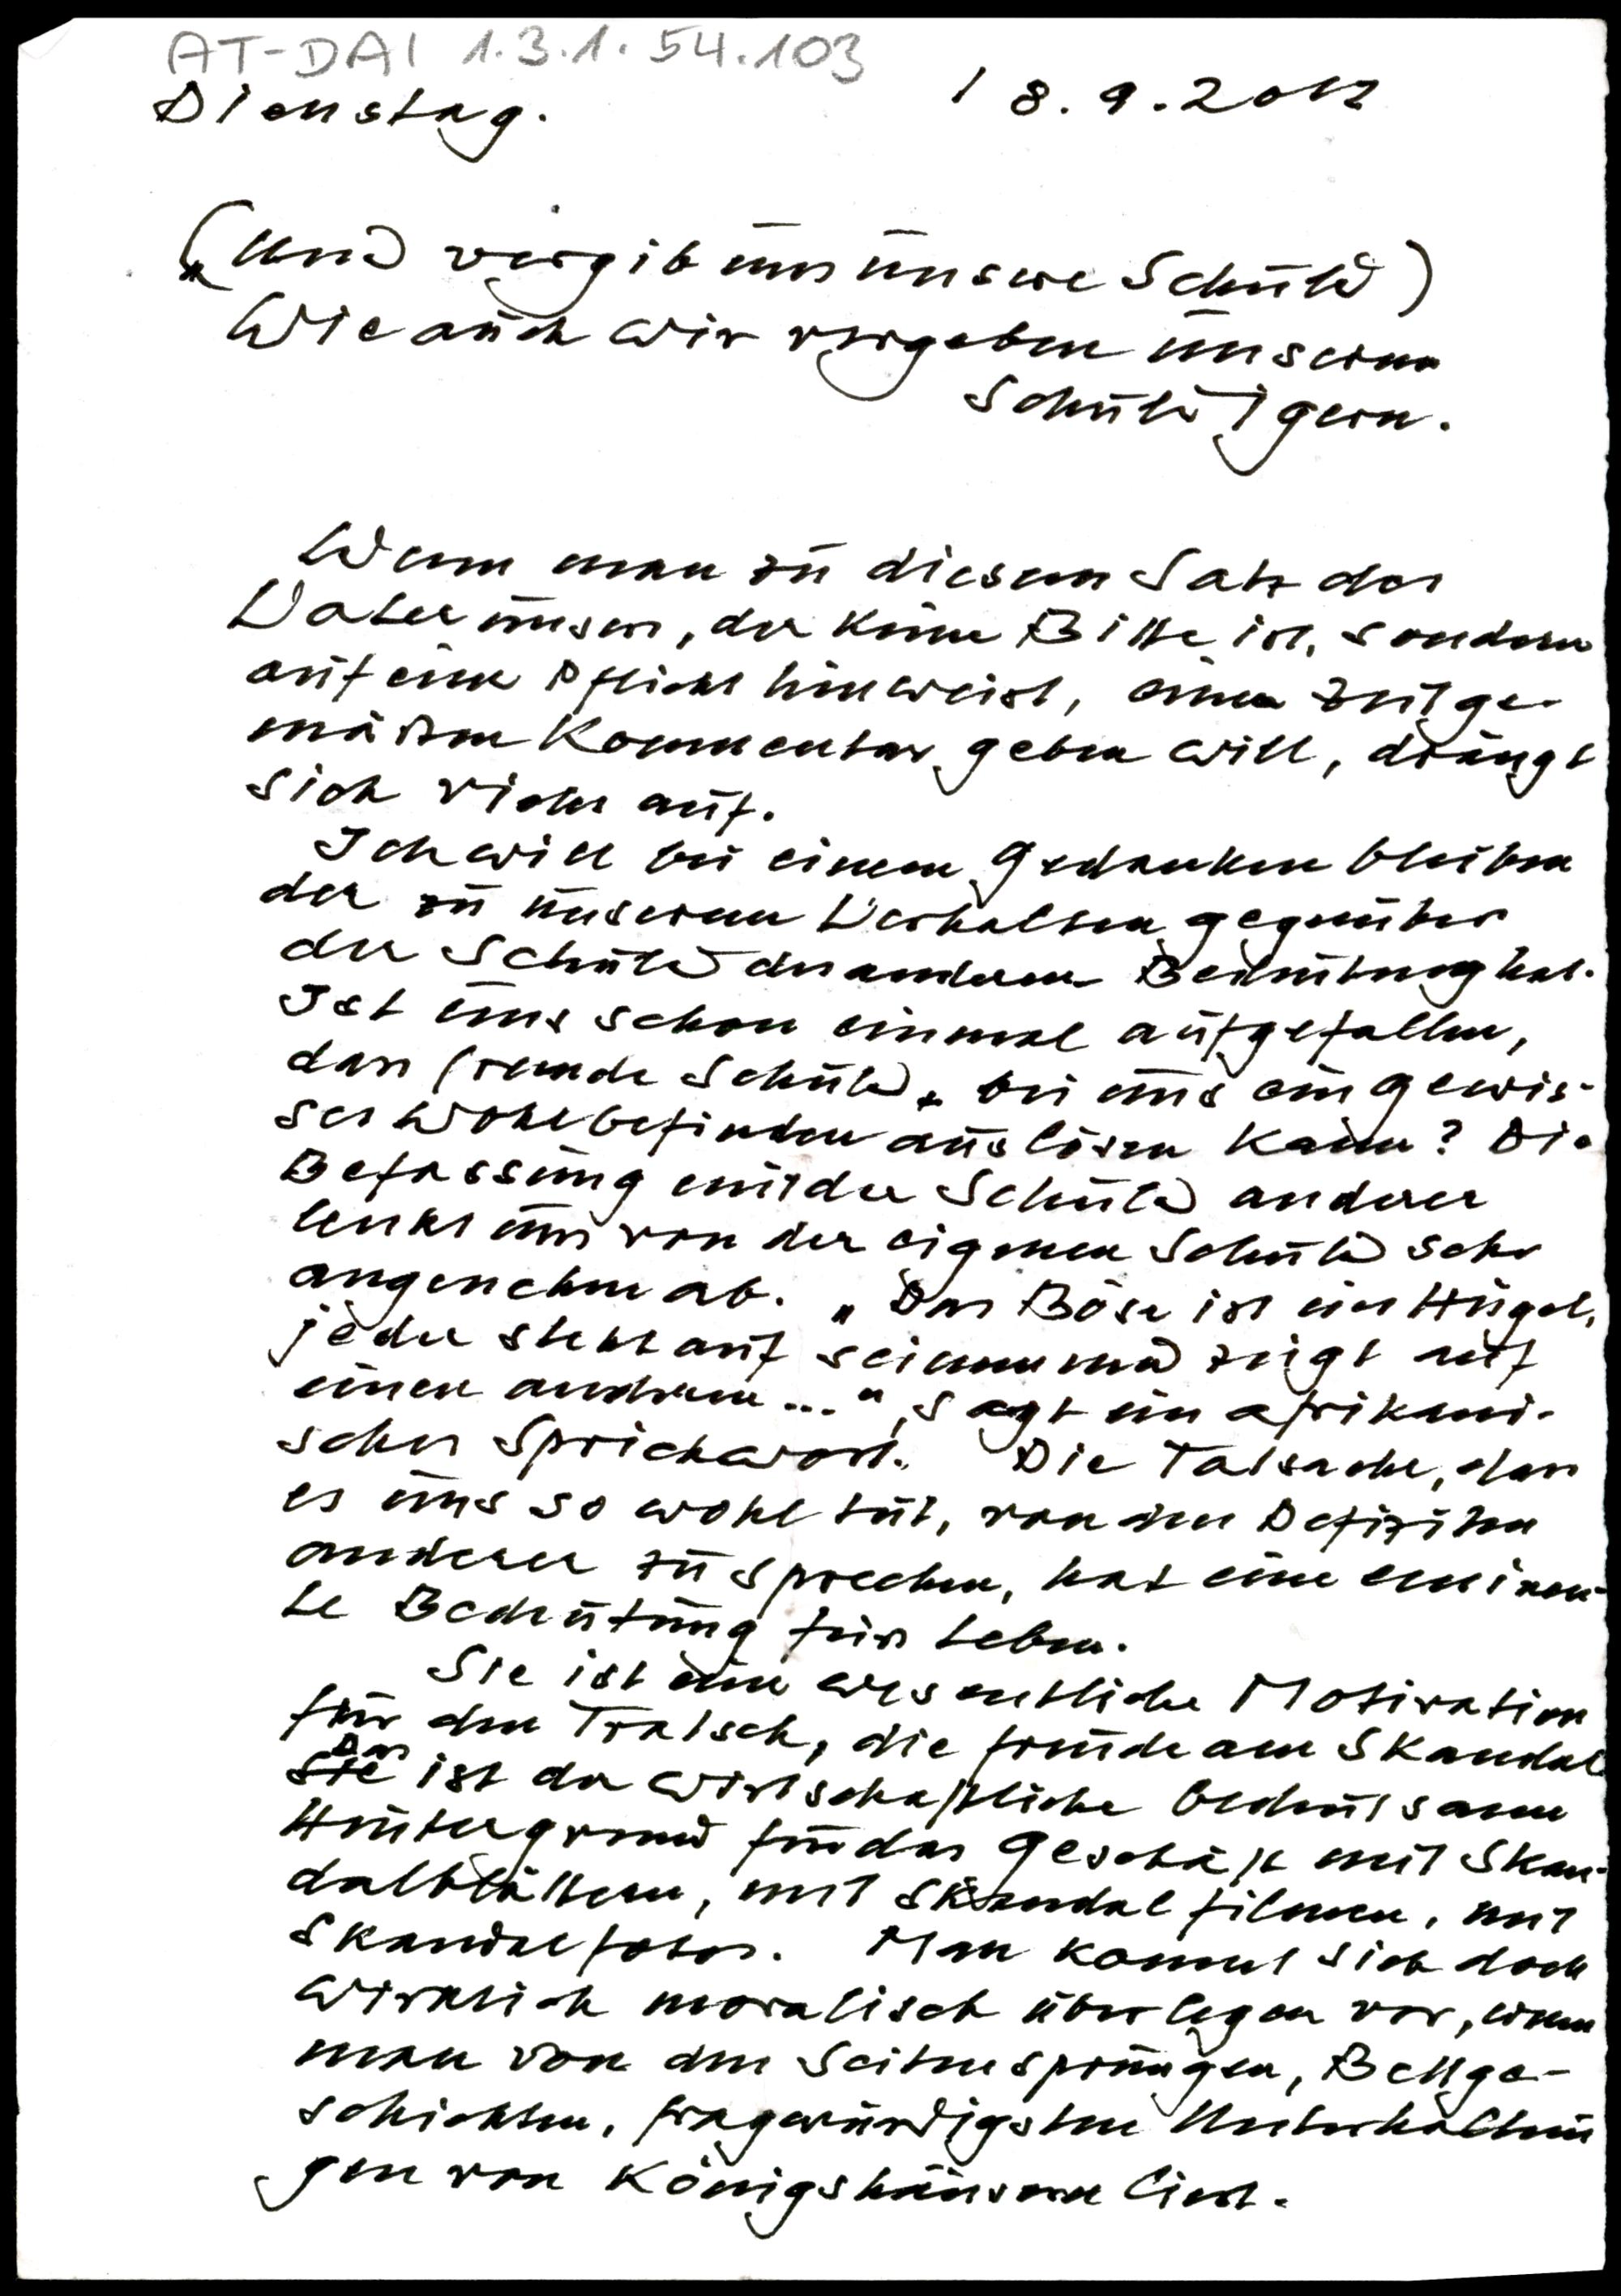 AT-DAI 1.3.1.54.103
Dienstag. 18.9.2012
(Und vergib uns unsere Schuld)
Wie auch wir vergeben unseren
Schuldigern.
Wenn man zu diesem Satz des
Vater unsers, der keine Bitte ist, sondern
auf eine Pflicht hinweist, einen zeitge-
mäßen Kommentar geben will, drängt
sich vieles auf.
Ich will bei einem Gedanken bleiben
der zu unserem Verhalten gegenüber
der Schuld der anderen Bedeutung hat.
Ist uns schon einmal aufgefallen,
dass fremde Schuld bei uns ein gewis-
ses Wohlbefinden auslösen kann? Die
Befassung mit der Schuld anderer
lenkt uns von der eigenen Schuld sehr
angenehm ab. „Das Böse ist ein Hügel,
jeder steht auf seinem und zeigt auf
einen anderen ...", sagt ein afrikani-
sches Sprichwort. Die Tatsache, dass
es uns so wohl tut, von den Defiziten
anderer zu sprechen, hat eine eminen-
te Bedeutung fürs Leben.
Sie ist eine wesentliche Motivation
für den Tratsch, die Freude am Skandal
Das ist der wirtschaftliche bedeutsame
Hintergrund für das Geschäft mit Skan-
dalblättern, mit Skandalfilmen, mit
Skandalfotos. Man kommt sich doch
wirklich moralisch überlegen vor, wenn
man von den Seitensprüngen, Bettge-
schichten, fragwürdigsten Unterhaltun
gen von Königshäusern liest.